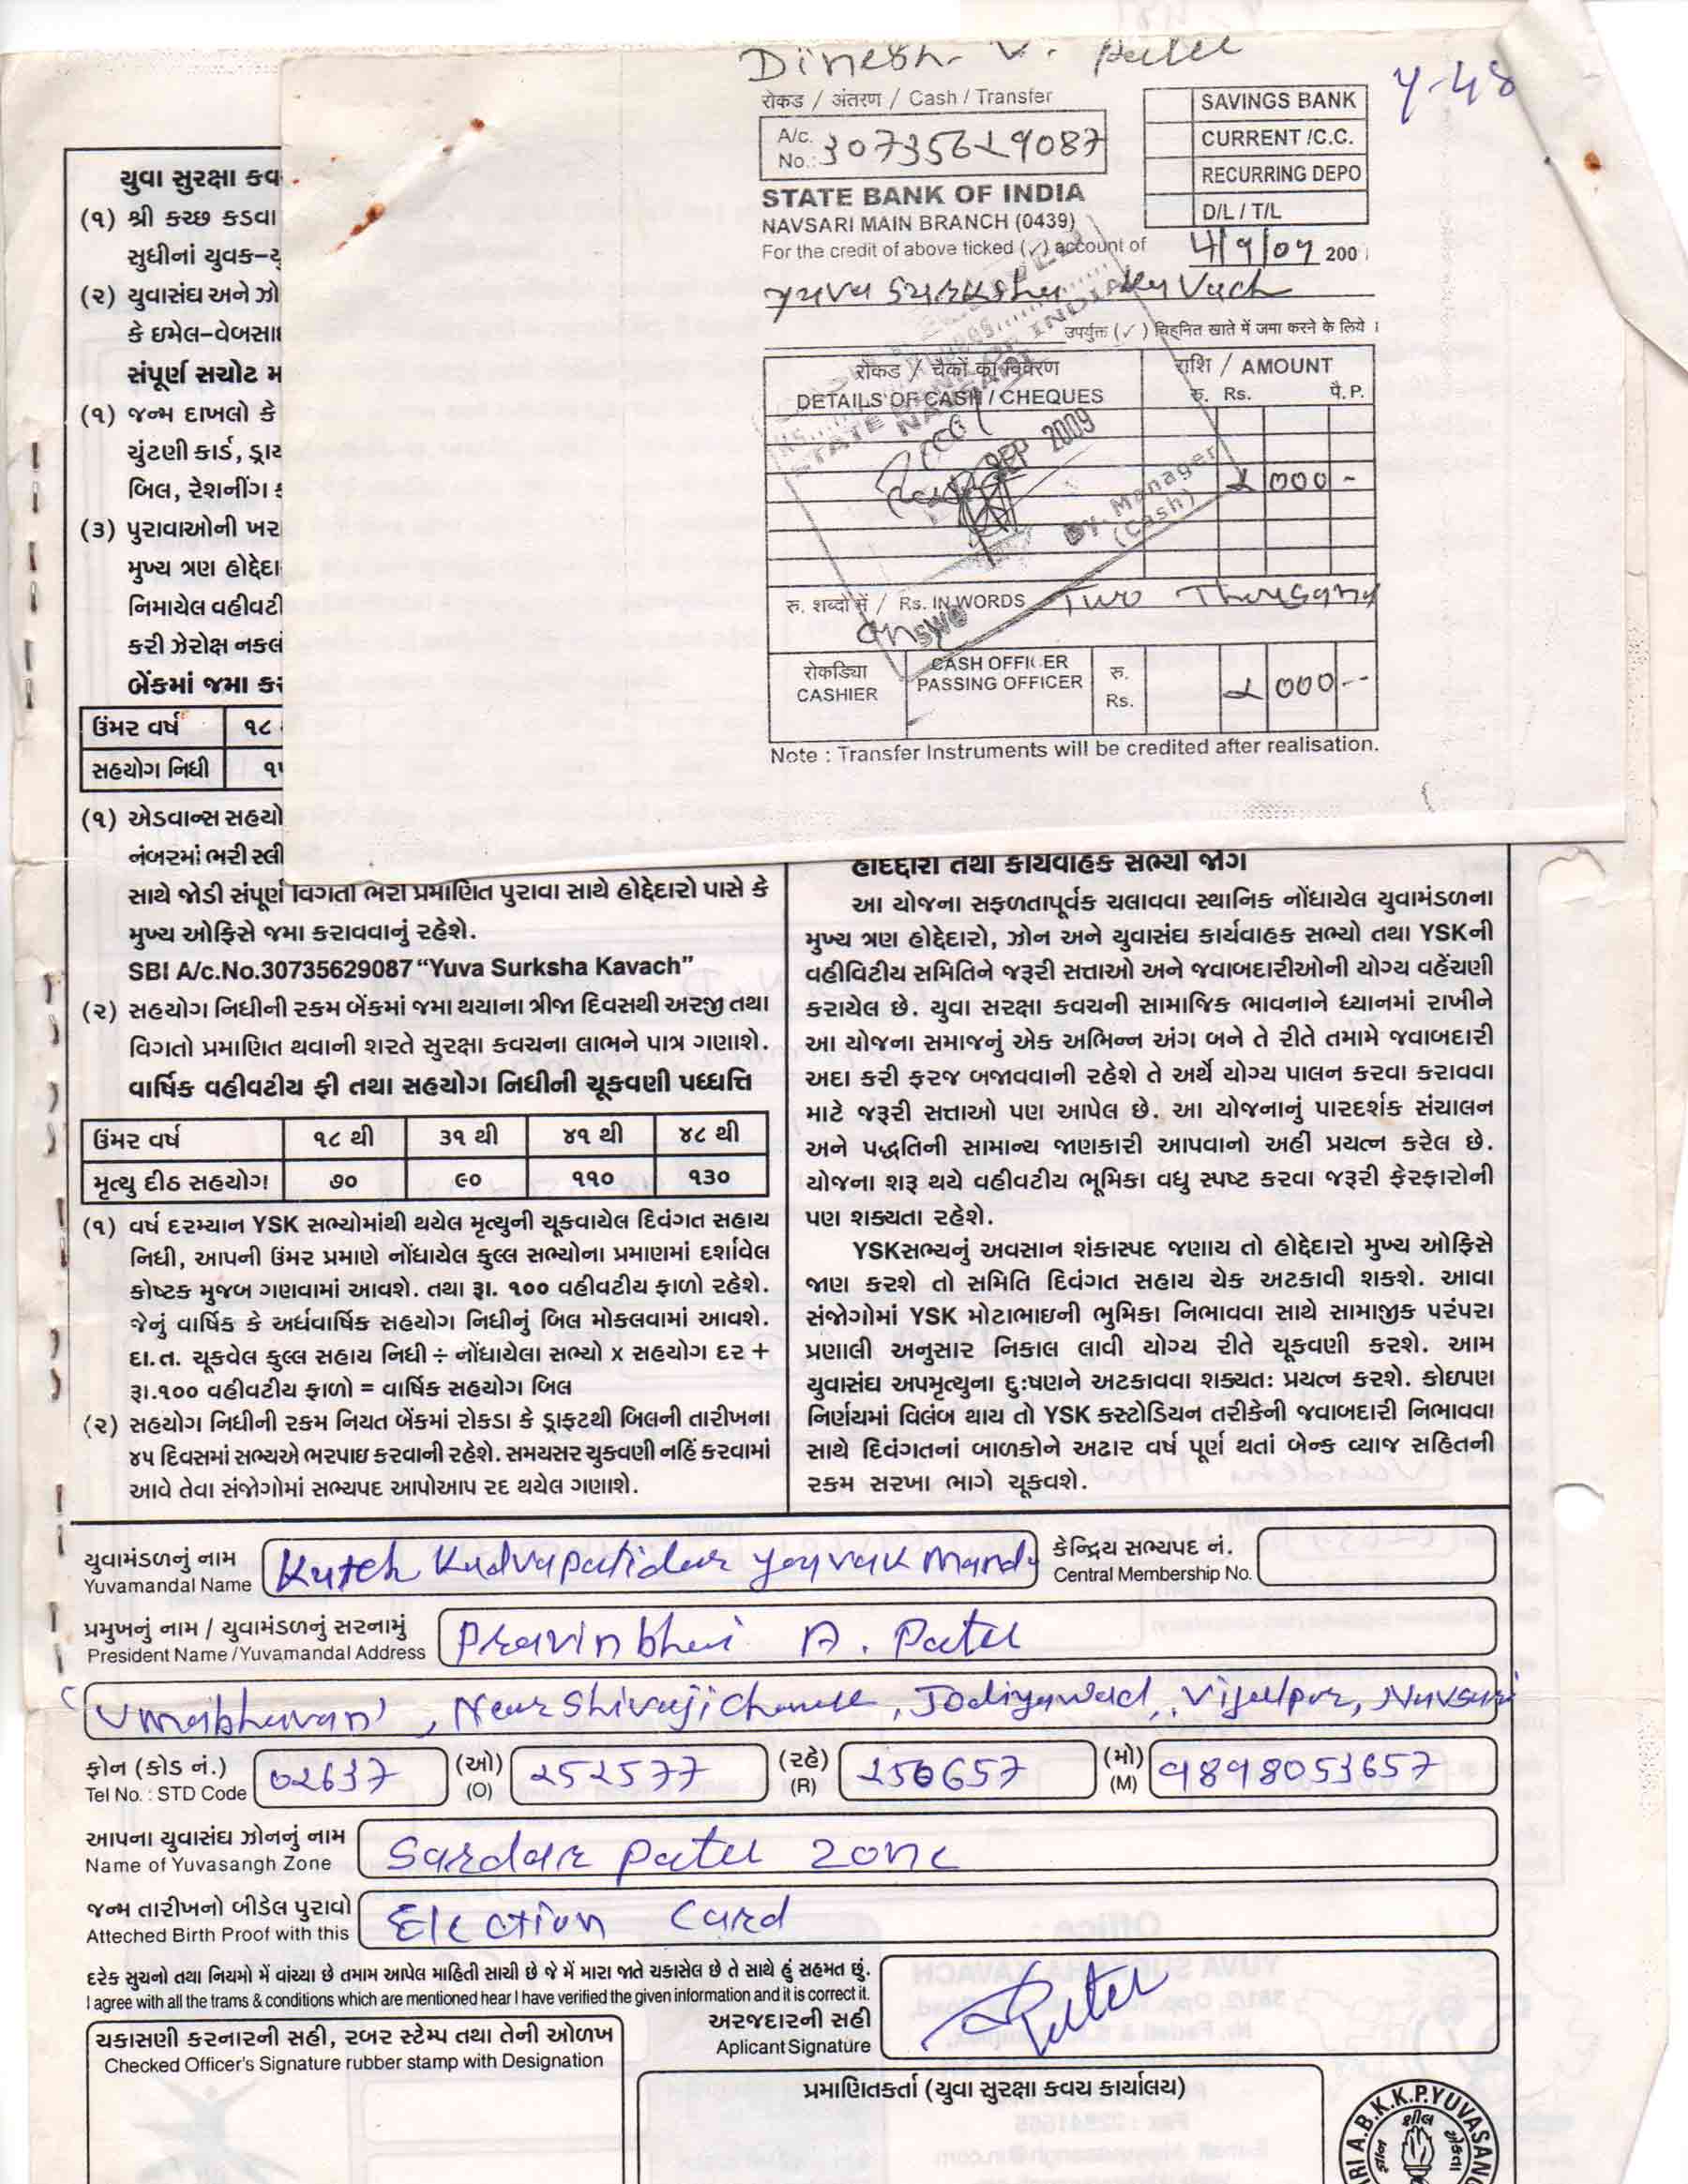 Dinesh. V. Patel
Y-48
रोकड / अंतरण / Cash / Transfer
A/c. No.: 30735629087
SAVINGS BANK
CURRENT /C.C.
RECURRING DEPO
D/L / T/L
STATE BANK OF INDIA
NAVSARI MAIN BRANCH (0439)
For the credit of above ticked (✓) account of
4/9/09 200
Yuva Surksha Kavach
उपर्युक्त (✓) चिह्नित खाते में जमा करने के लिये ।
रोकड / चैकों का विवरण राशि / AMOUNT
DETAILS OF CASH / CHEQUES रु. Rs. पै. P.
SEP 2009
2 000 -
Dy. Manager
(Cash)
रु. शब्दों में / Rs. IN WORDS Two Thousand
only
रोकडिया CASHIER
CASH OFFICER PASSING OFFICER
रु. Rs. 2 000 --
Note : Transfer Instruments will be credited after realisation.
યુવા સુરક્ષા કવ
(૧) શ્રી કચ્છ કડવા
સુધીનાં યુવક-યુ
(૨) યુવાસંઘ અને ઝો
કે ઇમેલ-વેબસા
સંપૂર્ણ સચોટ મ
(૧) જન્મ દાખલો કે
ચુંટણી કાર્ડ, ડ્રાય
બિલ, રેશનીંગ ક
(૩) પુરાવાઓની ખર
મુખ્ય ત્રણ હોદ્દેદા
નિમાયેલ વહીવટી
કરી ઝેરોક્ષ નકલ
બેંકમાં જમા કર
ઉંમર વર્ષ ૧૮
સહયોગ નિધી ૧૫
(૧) એડવાન્સ સહયો
નંબરમાં ભરી સ્લી
સાથે જોડી સંપૂર્ણ વિગતો ભરી પ્રમાણિત પુરાવા સાથે હોદ્દેદારો પાસે કે
મુખ્ય ઓફિસે જમા કરાવવાનું રહેશે.
SBI A/c.No.30735629087 “Yuva Surksha Kavach”
(૨) સહયોગ નિધીની રકમ બેંકમાં જમા થયાના ત્રીજા દિવસથી અરજી તથા
વિગતો પ્રમાણિત થવાની શરતે સુરક્ષા કવચના લાભને પાત્ર ગણાશે.
વાર્ષિક વહીવટીય ફી તથા સહયોગ નિધીની ચૂકવણી પધ્ધત્તિ
ઉંમર વર્ષ ૧૮ થી ૩૧ થી ૪૧ થી ૪૮ થી
મૃત્યુ દીઠ સહયોગ ૭૦ ૯૦ ૧૧૦ ૧૩૦
(૧) વર્ષ દરમ્યાન YSK સભ્યોમાંથી થયેલ મૃત્યુની ચૂકવાયેલ દિવંગત સહાય
નિધી, આપની ઉંમર પ્રમાણે નોંધાયેલ કુલ્લ સભ્યોના પ્રમાણમાં દર્શાવેલ
કોષ્ટક મુજબ ગણવામાં આવશે. તથા રૂા. ૧૦૦ વહીવટીય ફાળો રહેશે.
જેનું વાર્ષિક કે અર્ધવાર્ષિક સહયોગ નિધીનું બિલ મોકલવામાં આવશે.
દા.ત. ચૂકવેલ કુલ્લ સહાય નિધી ÷ નોંધાયેલા સભ્યો x સહયોગ દર +
રૂા.૧૦૦ વહીવટીય ફાળો = વાર્ષિક સહયોગ બિલ
(૨) સહયોગ નિધીની રકમ નિયત બેંકમાં રોકડા કે ડ્રાફટથી બિલની તારીખના
૪૫ દિવસમાં સભ્યએ ભરપાઇ કરવાની રહેશે. સમયસર ચુકવણી નહિં કરવામાં
આવે તેવા સંજોગોમાં સભ્યપદ આપોઆપ રદ થયેલ ગણાશે.
હોદ્દેદારો તથા કાર્યવાહક સભ્યો જોગ
આ યોજના સફળતાપૂર્વક ચલાવવા સ્થાનિક નોંધાયેલ યુવામંડળના
મુખ્ય ત્રણ હોદ્દેદારો, ઝોન અને યુવાસંઘ કાર્યવાહક સભ્યો તથા YSKની
વહીવિટીય સમિતિને જરૂરી સત્તાઓ અને જવાબદારીઓની યોગ્ય વહેંચણી
કરાયેલ છે. યુવા સરક્ષા કવચની સામાજિક ભાવનાને ધ્યાનમાં રાખીને
આ યોજના સમાજનું એક અભિન્ન અંગ બને તે રીતે તમામે જવાબદારી
અદા કરી ફરજ બજાવવાની રહેશે તે અર્થે યોગ્ય પાલન કરવા કરાવવા
માટે જરૂરી સત્તાઓ પણ આપેલ છે. આ યોજનાનું પારદર્શક સંચાલન
અને પદ્ધતિની સામાન્ય જાણકારી આપવાનો અહીં પ્રયત્ન કરેલ છે.
યોજના શરૂ થયે વહીવટીય ભૂમિકા વધુ સ્પષ્ટ કરવા જરૂરી ફેરફારોની
પણ શક્યતા રહેશે.
YSKસભ્યનું અવસાન શંકાસ્પદ જણાય તો હોદ્દેદારો મુખ્ય ઓફિસે
જાણ કરશે તો સમિતિ દિવંગત સહાય ચેક અટકાવી શકશે. આવા
સંજોગોમાં YSK મોટાભાઇની ભુમિકા નિભાવવા સાથે સામાજીક પરંપરા
પ્રણાલી અનુસાર નિકાલ લાવી યોગ્ય રીતે ચૂકવણી કરશે. આમ
યુવાસંઘ અપમૃત્યુના દુઃષણને અટકાવવા શક્યતઃ પ્રયત્ન કરશે. કોઇપણ
નિર્ણયમાં વિલંબ થાય તો YSK કસ્ટોડિયન તરીકેની જવાબદારી નિભાવવા
સાથે દિવંગતનાં બાળકોને અઢાર વર્ષ પૂર્ણ થતાં બેન્ક વ્યાજ સહિતની
રકમ સરખા ભાગે ચૂકવશે.
યુવામંડળનું નામ Kutch Kadva patidar yuvak Mandl કેન્દ્રિય સભ્યપદ નં.
Yuvamandal Name Central Membership No.
પ્રમુખનું નામ / યુવામંડળનું સરનામું Pravinbhai A. Patel
President Name /Yuvamandal Address
'Umabhavan', Near Shivaji chowk, Jodiyawad, Vijalpor, Navsari
ફોન (કોડ નં.) 02637 (ઓ) 252577 (રહે) 250657 (મો) 9898053657
Tel No. : STD Code (O) (R) (M)
આપના યુવાસંઘ ઝોનનું નામ Sardar patel zone
Name of Yuvasangh Zone
જન્મ તારીખનો બીડેલ પુરાવો Election Card
Atteched Birth Proof with this
દરેક સુચનો તથા નિયમો મેં વાંચ્યા છે તમામ આપેલ માહિતી સાચી છે જે મેં મારા જાતે ચકાસેલ છે તે સાથે હું સહમત છું.
I agree with all the trams & conditions which are mentioned hear I have verified the given information and it is correct it.
અરજદારની સહી Patel
Aplicant Signature
ચકાસણી કરનારની સહી, રબર સ્ટેમ્પ તથા તેની ઓળખ
Checked Officer's Signature rubber stamp with Designation
પ્રમાણિતકર્તા (યુવા સુરક્ષા કવચ કાર્યાલય)
RI A.B.K.K.P.YUVASAN